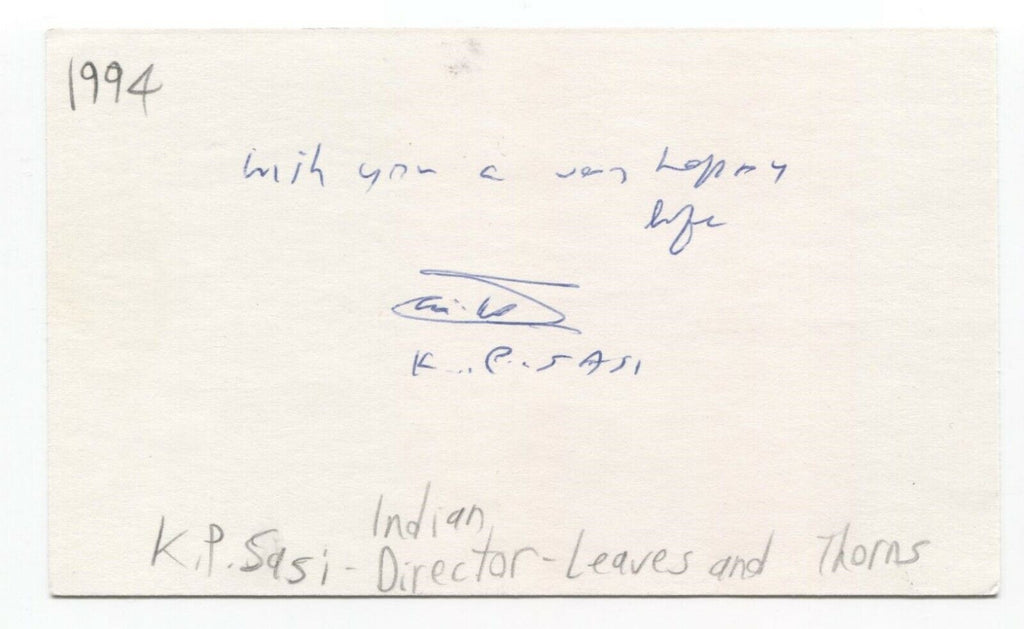 1994
Wish you a very happy
life
K. P. SASI
Indian
K.P. Sasi - Director - Leaves and Thorns